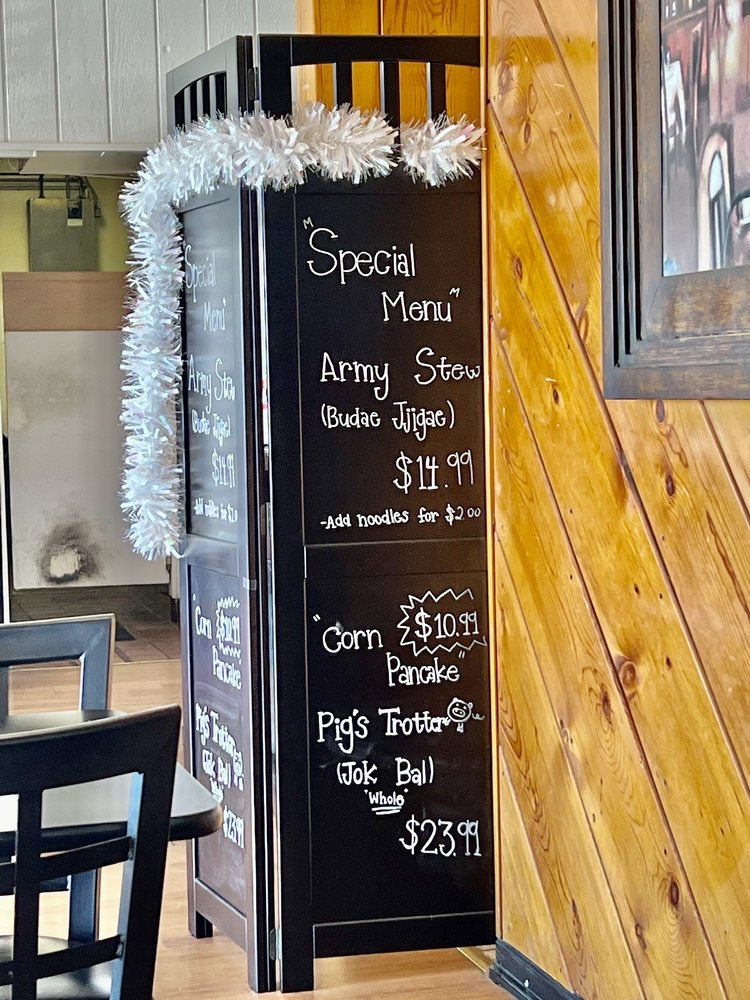 Special
Menu"
Army Stew
(Budae Jjigae)
$14.99
-Add noodles for $2.0
"Corn $10.99
Pancake"
Pig's Trotter
(Jok Bal)
Whole
$23.99
"Special
Menu"
Army Stew
(Budae Jjigae)
$14.99
-Add noodles for $2.00
"Corn $10.99
Pancake"
Pig's Trotter
(Jok Bal)
"Whole"
$23.99